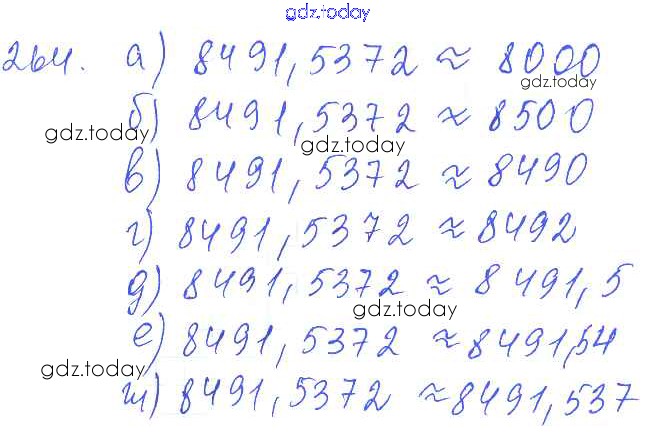 gdz.today
264. а) 8491,5372 ≈ 8000
gdz.today
б) 8491,5372 ≈ 8500
gdz.today
gdz.today
в) 8491,5372 ≈ 8490
г) 8491,5372 ≈ 8492
д) 8491,5372 ≈ 8491,5
gdz.today
е) 8491,5372 ≈ 8491,54
gdz.today
ж) 8491,5372 ≈ 8491,537